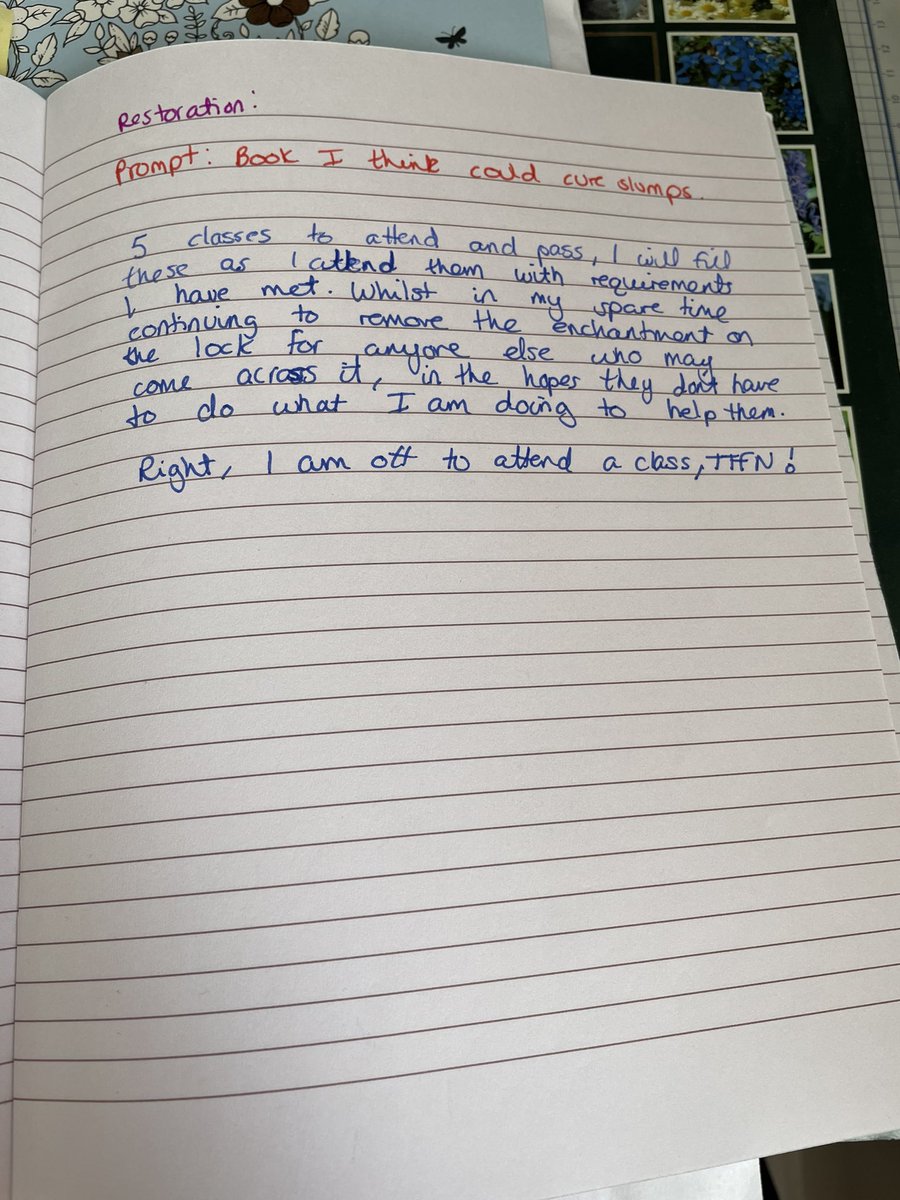 Restoration:
Prompt: Book I think could cure slumps.
5 classes to attend and pass, I will fill
these as I attend them with requirements
I have met. Whilst in my spare time
continuing to remove the enchantment on
the lock for anyone else who may
come across it, in the hopes they don't have
to do what I am doing to help them.
Right, I am off to attend a class, TTFN!